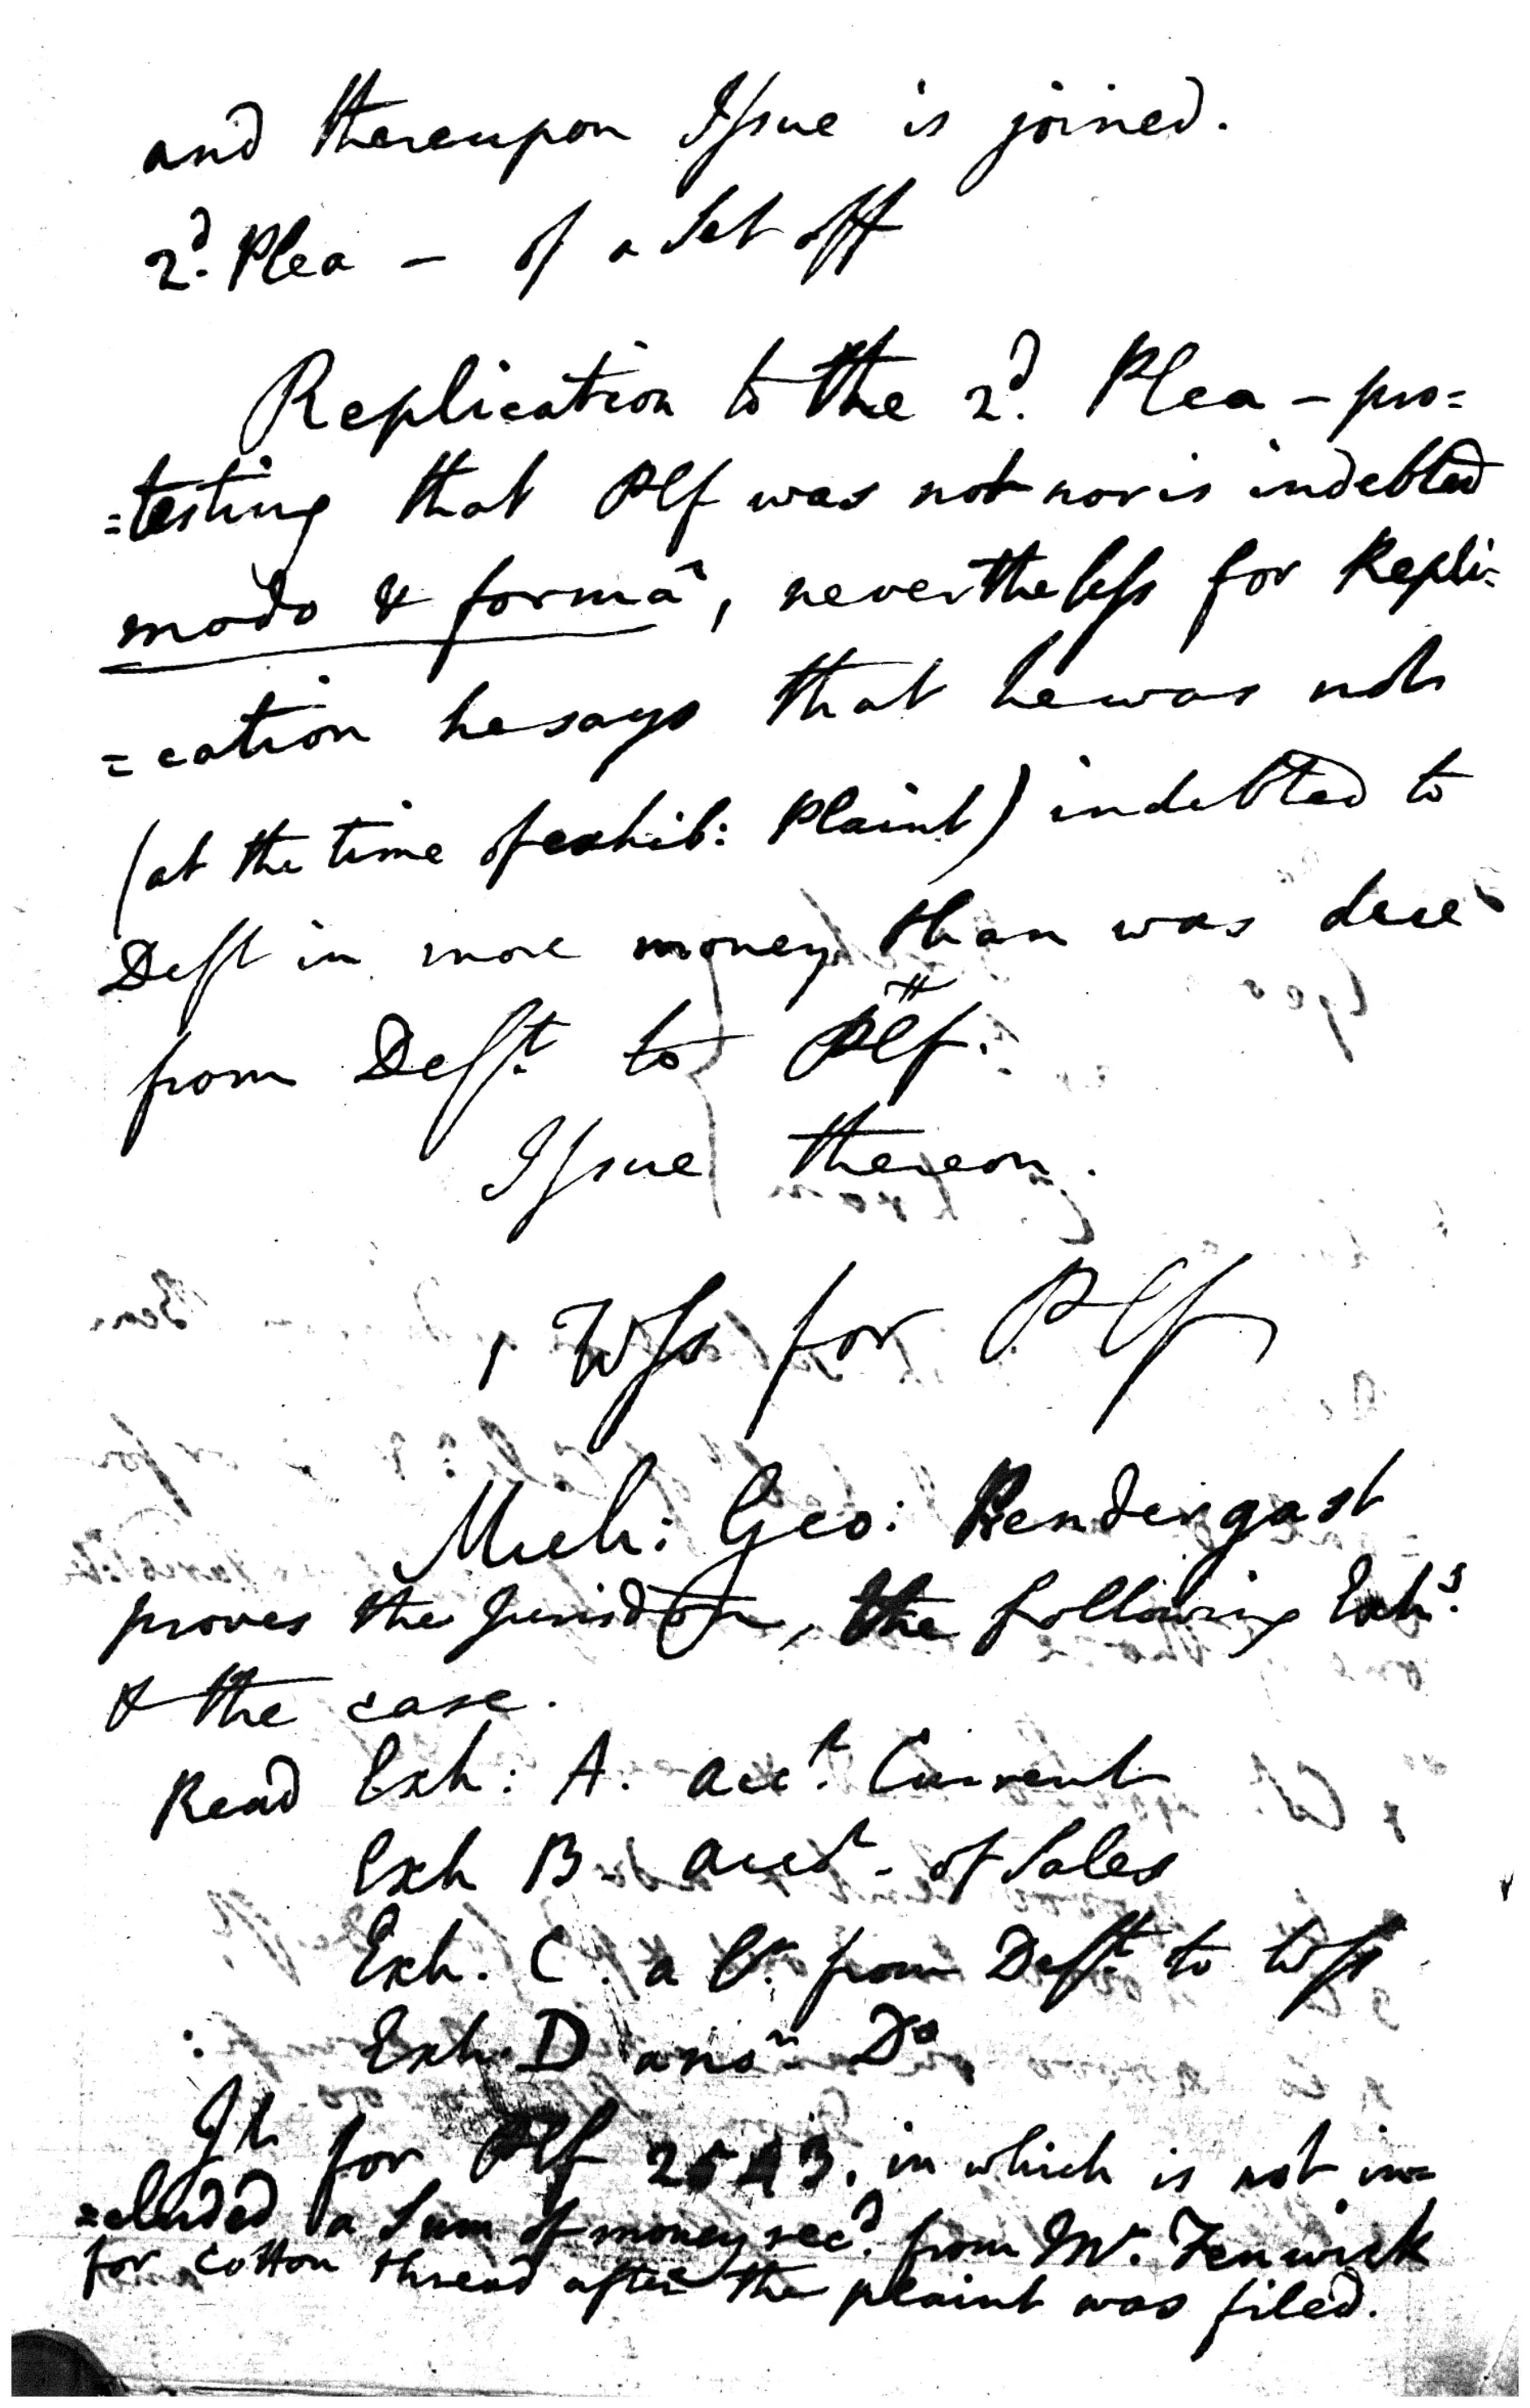 and thereupon Issue is joined.
2d. Plea – of a Set off
Replication to the 2d. Plea – pro=
=testing that Plf was not nor is indebted
modo & formâ, nevertheless for Repli=
=cation he says that he was not
(at the time of exhib: Plaint) indebted to
Deft in more money than was due
from Deft. to Plff.
Issue thereon.
1 Wss for Plf
Mich: Geo: Prendergast
proves the Jurisdon, the following Exhs.
& the case.
Read Exh: A. acct. Current
Exh B. acct. of Sales
Exh. C. a lr. from Deft. to Wss
Exh. D anor. Do
Jt. for Plf 2543. in which is not in=
=cluded a Sum of money recd. from Mr. Fenwick
for cotton thread after the plaint was filed.